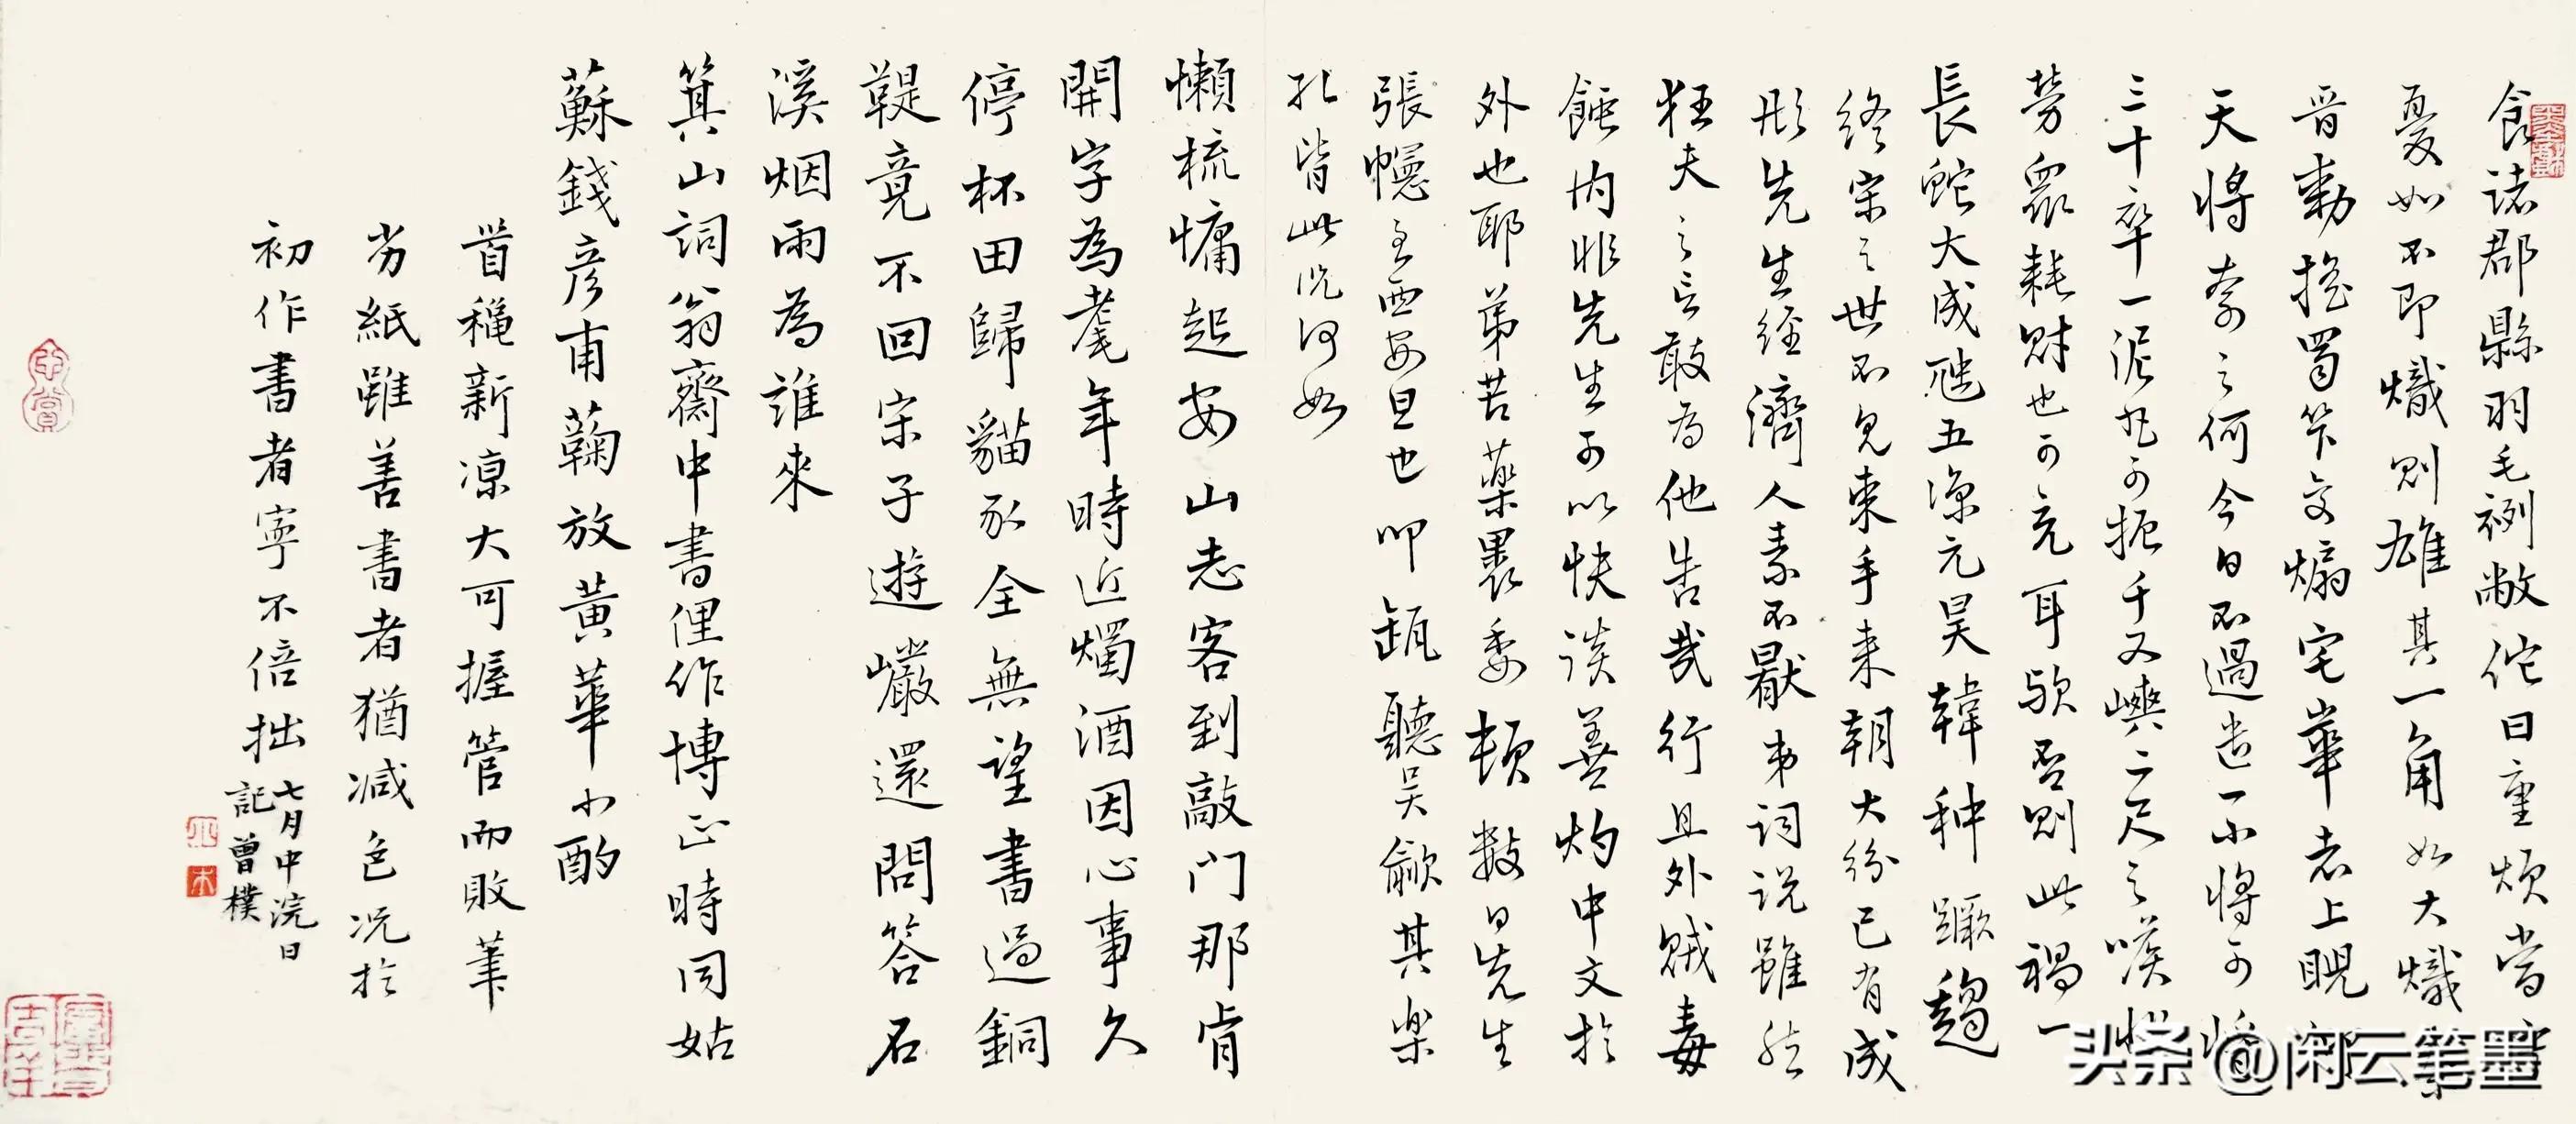 食諸郡縣羽毛裂敝佗日重煩當
憂如不即熾則雄其一角如大熾
晋動搖蜀笮交煽宅華者上睨
天將奈之何今日不過遣一小將可
三十卒一泥丸可振千又嶼二尺之喉
勞衆耗財也可克耳欤否則此禍一
長蛇大成虺五涼元昊韓种蹶趨
終宋之世不見束手来朝大約已有成
形先生經濟人素不厭弟詞说雖然
狂夫之言敢為他告哉行且外贼毒
錘内非先生可以快談善灼中文於
外也耶弟苦藥裹委頓數日先生
張幰至西安且也叩瓿聽吴歈其樂
孔皆此况何如
懶梳慵起安山志客到敲门那肯
開字為耄年時近燭酒因心事久
停杯田歸貓豕全無望書過銅
鞮竟不回宋子遊巖還問答石
溪烟雨為誰來
箕山詞翁齋中書俚作博正時同姑
蘇錢彦甫鞠放黄華小酌
首穐新凉大可握管而敗筆
劣紙雖善書者猶减色况於
初作書者寧不倍拙
七月中浣日
記曾樸
头条@闲云笔墨